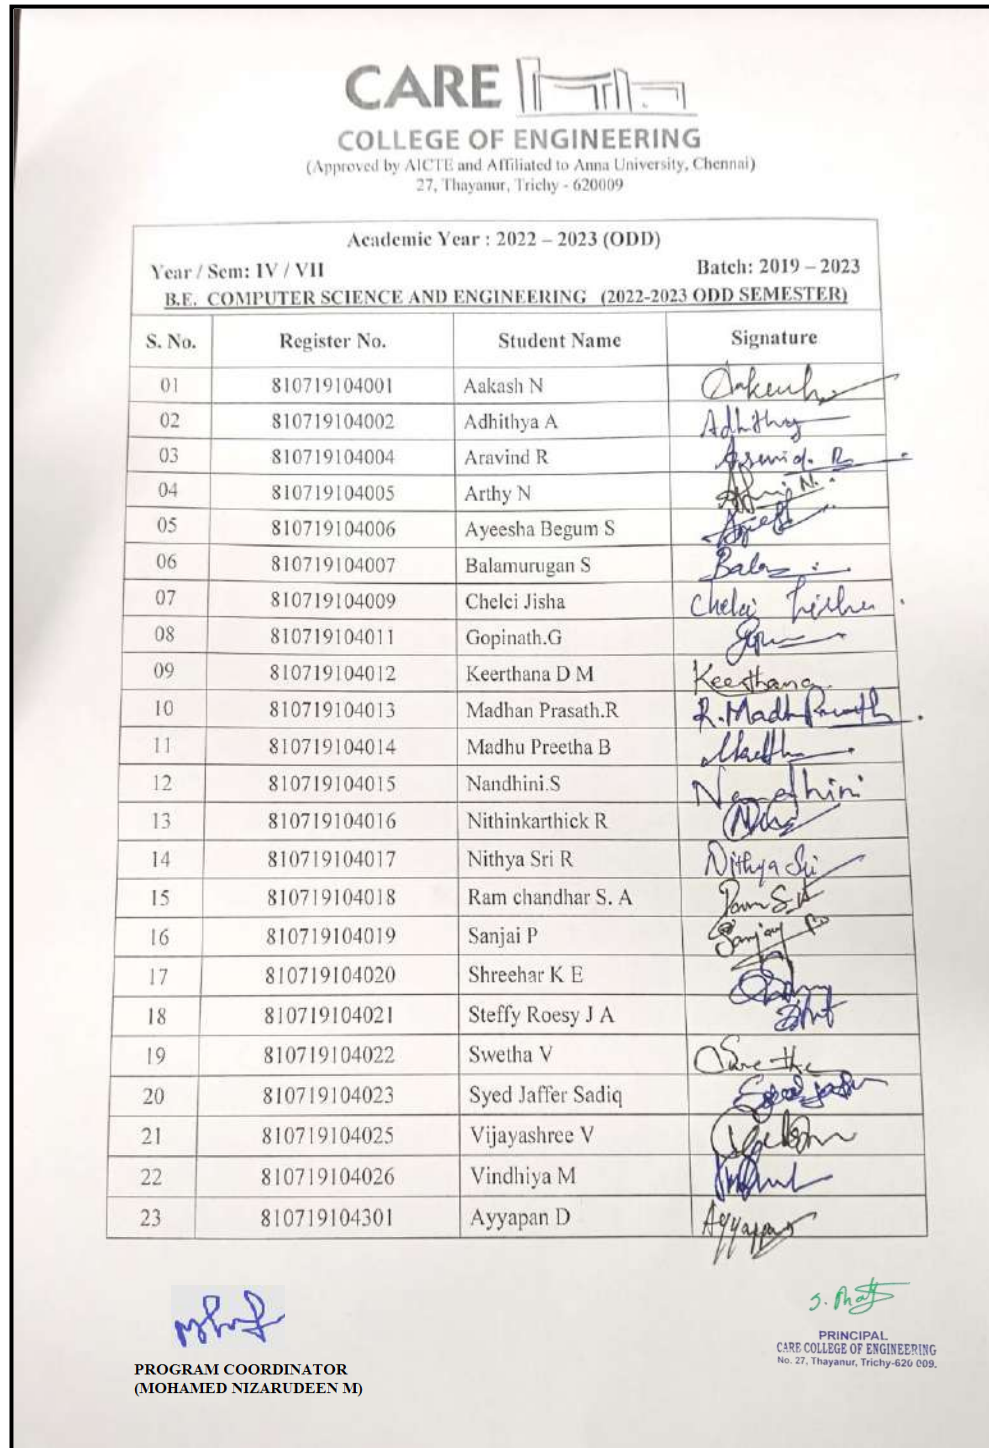 CARE
COLLEGE OF ENGINEERING
(Approved by AICTE and Affiliated to Anna University, Chennai)
27, Thayanur, Trichy - 620009
Academic Year : 2022 – 2023 (ODD)
Year / Sem: IV / VII Batch: 2019 – 2023
B.E. COMPUTER SCIENCE AND ENGINEERING (2022-2023 ODD SEMESTER)
S. No. Register No. Student Name Signature
01 810719104001 Aakash N
02 810719104002 Adhithya A Adhithy
03 810719104004 Aravind R
04 810719104005 Arthy N
05 810719104006 Ayeesha Begum S
06 810719104007 Balamurugan S
07 810719104009 Chelci Jisha Chelci
08 810719104011 Gopinath.G
09 810719104012 Keerthana D M Keerthana
10 810719104013 Madhan Prasath.R
11 810719104014 Madhu Preetha B
12 810719104015 Nandhini.S Nandhini
13 810719104016 Nithinkarthick R
14 810719104017 Nithya Sri R Nithya Sri
15 810719104018 Ram chandhar S. A
16 810719104019 Sanjai P Sanjay
17 810719104020 Shreehar K E
18 810719104021 Steffy Roesy J A
19 810719104022 Swetha V
20 810719104023 Syed Jaffer Sadiq
21 810719104025 Vijayashree V
22 810719104026 Vindhiya M
23 810719104301 Ayyapan D
PROGRAM COORDINATOR
(MOHAMED NIZARUDEEN M)
PRINCIPAL
CARE COLLEGE OF ENGINEERING
No. 27, Thayanur, Trichy-620 009.